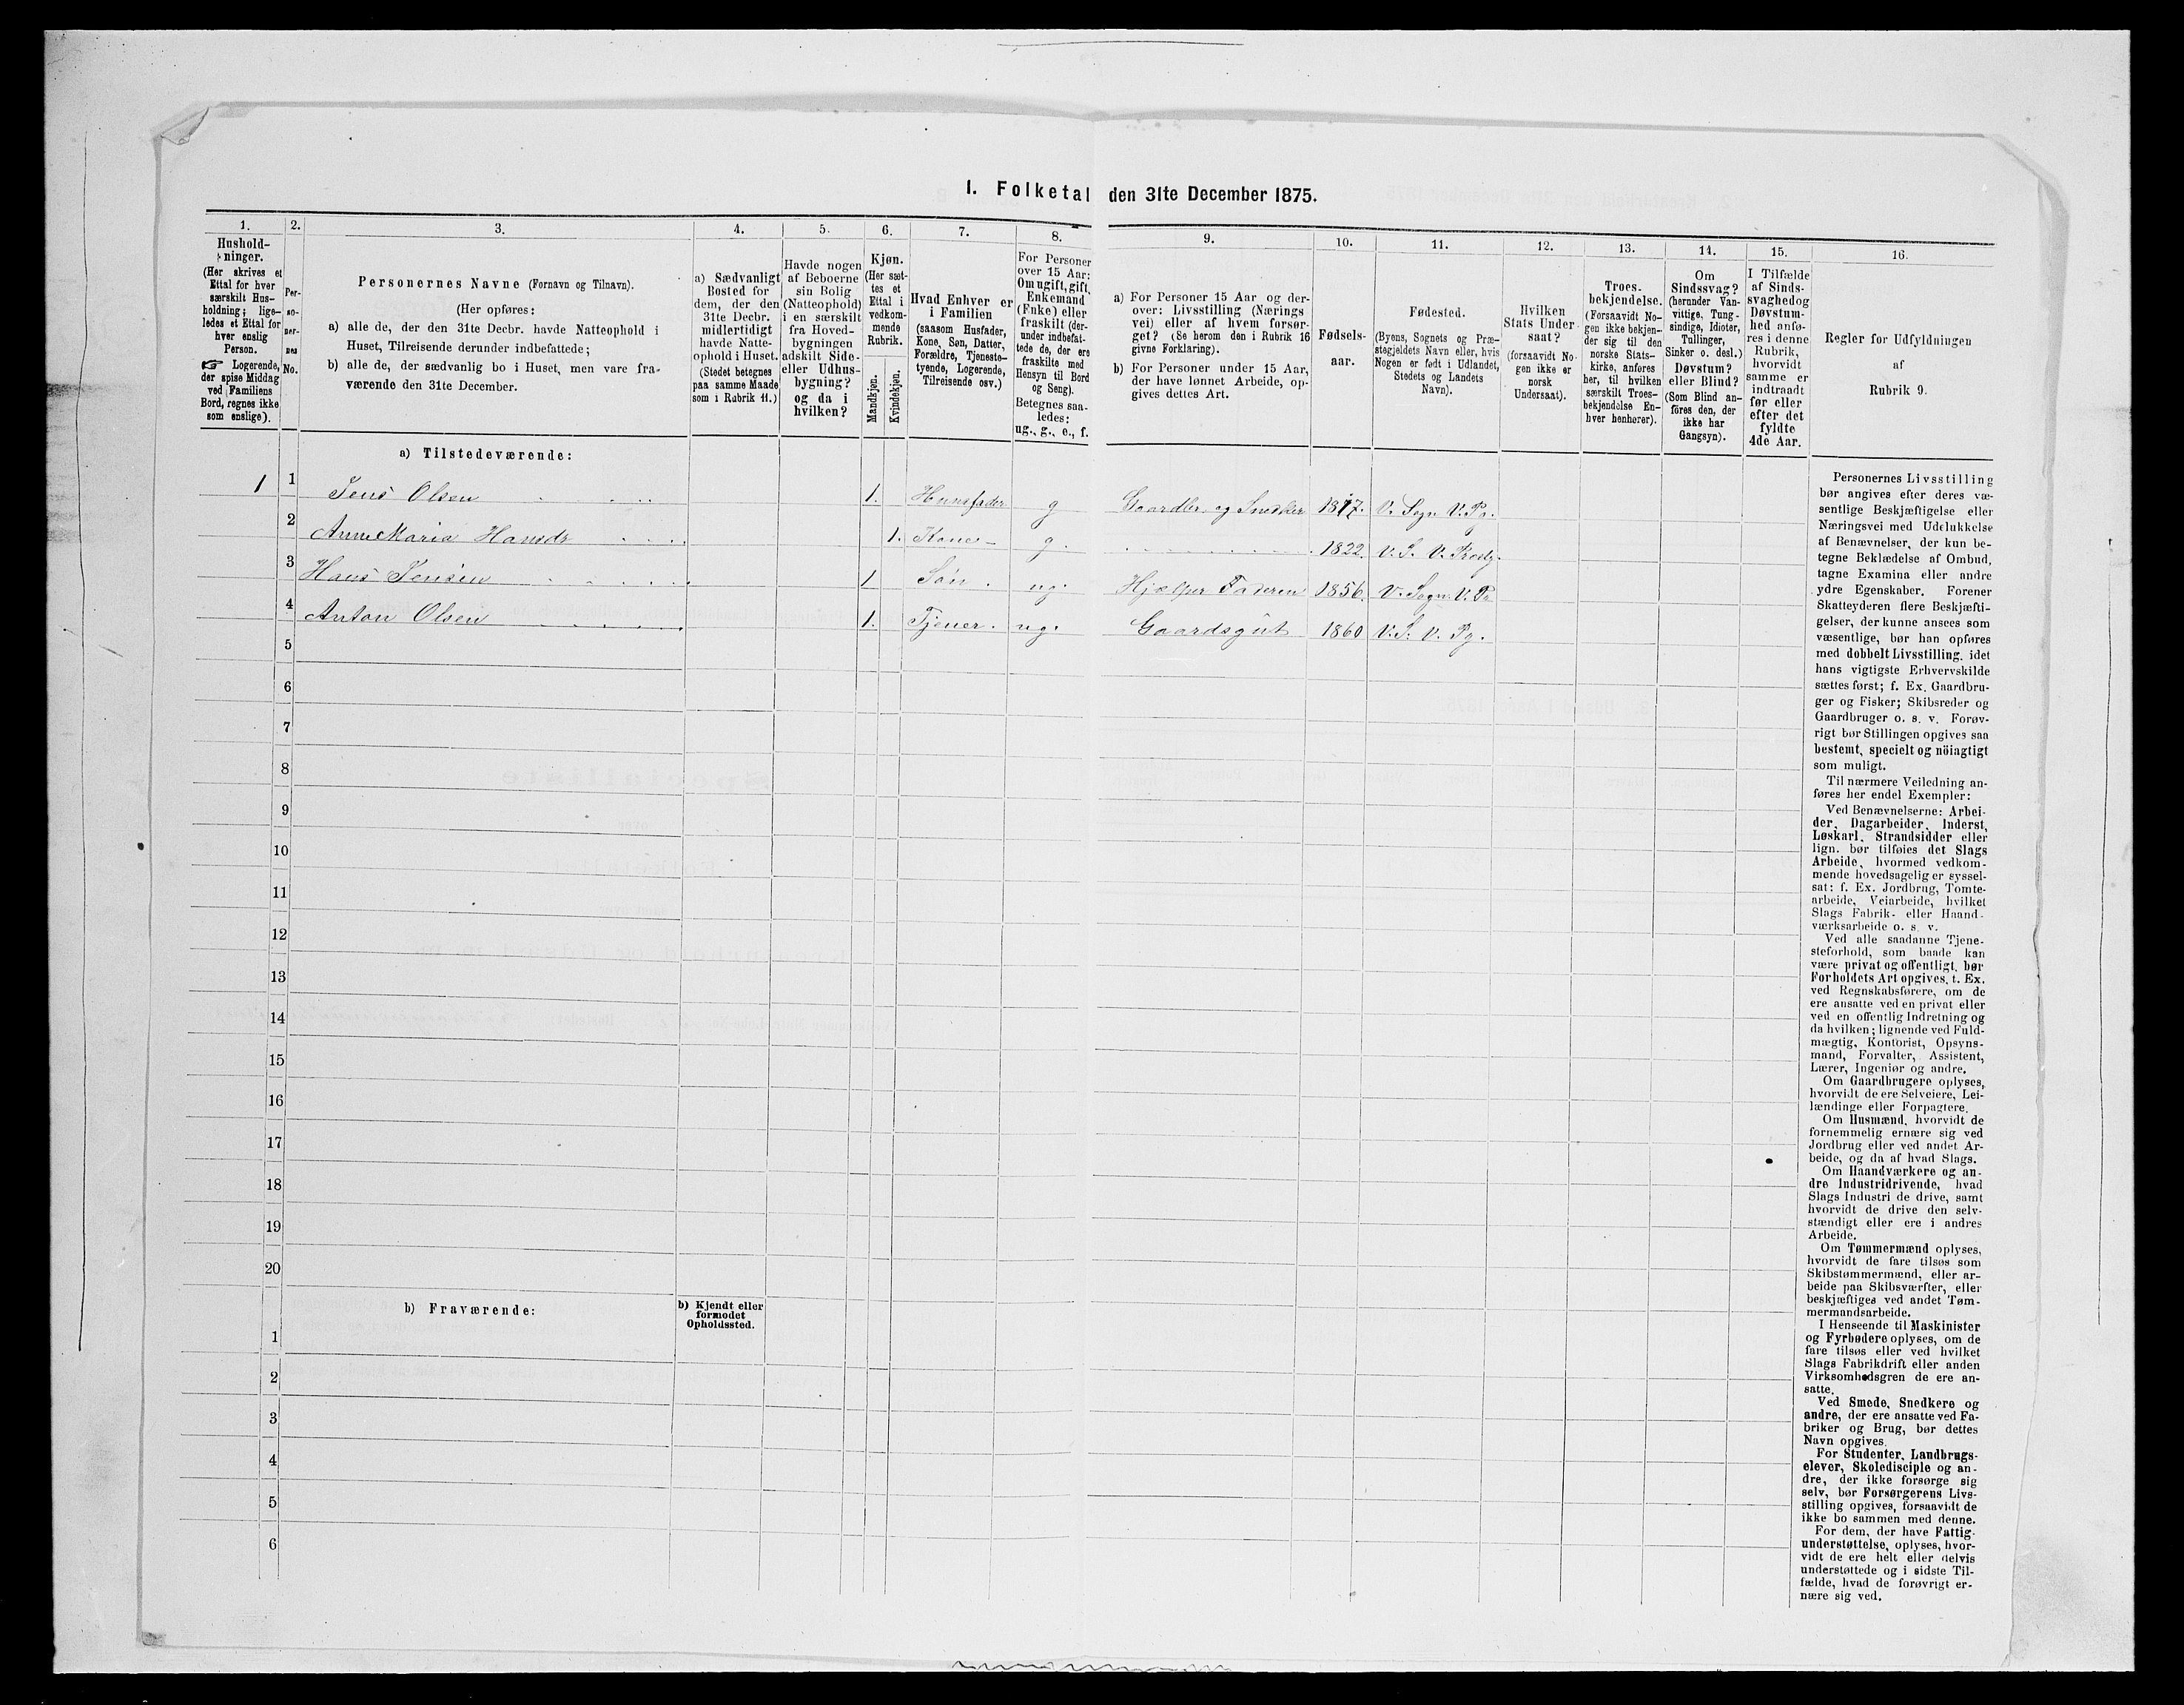 I. Folketal den 31te December 1875.
1. 2. 3. 4. 5. 6. 7. 8. 9. 10. 11. 12. 13. 14. 15. 16.
Hushold-
ninger.
(Her skrives et
Ettal for hver
særskilt Hus-
holdning; lige-
ledes et Ettal for
hver enslig
Person.
☞ Logerende,
der spise Middag
ved Familiens
Bord, regnes ikke
som enslige).
Per-
so-
ner-
nes
No.
Personernes Navne (Fornavn og Tilnavn).
(Her opføres:
a) alle de, der den 31te Decbr. havde Natteophold i
Huset, Tilreisende derunder indbefattede;
b) alle de, der sædvanlig bo i Huset, men vare fra-
værende den 31te December.
a) Sædvanligt
Bosted for
dem, der den
31te Decbr.
midlertidigt
havde Natte-
ophold i Huset.
(Stedet betegnes
paa samme Maade
som i Rubrik 11.)
Havde nogen
af Beboerne
sin Bolig
(Natteophold)
i en særskilt
fra Hoved-
bygningen
adskilt Side-
eller Udhus-
bygning?
og da i
hvilken?
Kjøn.
(Her sæt-
tes et
Ettal i
vedkom-
mende
Rubrik.
Mandkjøn.
Kvindekjøn.
Hvad Enhver er
i Familien
(saasom Husfader,
Kone, Søn, Datter,
Forældre, Tjeneste-
tyende, Logerende,
Tilreisende osv.)
For Personer
over 15 Aar:
Om ugift, gift,
Enkemand
(Enke) eller
fraskilt (der-
under indbefat-
tede de, der ere
fraskilte med
Hensyn til Bord
og Seng).
Betegnes saa-
ledes:
ug., g., e., f.
a) For Personer 15 Aar og der-
over: Livsstilling (Nærings
vei) eller af hvem forsør-
get? (Se herom den i Rubrik 16
givne Forklaring).
b) For Personer under 15 Aar,
der have lønnet Arbeide, op-
gives dettes Art.
Fødsels-
aar.
Fødested.
(Byens, Sognets og Præ-
stegjeldets Navn eller, hvis
Nogen er født i Udlandet,
Stedets og Landets
Navn).
Hvilken
Stats Under-
saat?
(forsaavidt No-
gen ikke er
norsk
Undersaat).
Troes-
bekjendelse.
(Forsaavidt No-
gen ikke bekjen-
der sig til den
norske Stats-
kirke, anføres
her, til hvilken
særskilt Troes-
bekjendelse En-
hver henhører).
Om
Sindssvag?
(herunder Van-
vittige, Tung-
sindige, Idioter,
Tullinger,
Sinker o. desl.)
Døvstum?
eller Blind?
(Som Blind an-
føres den, der
ikke har
Gangsyn).
I Tilfælde
af Sinds-
svaghed og
Døvstum-
hed anfø-
res i denne
Rubrik,
hvorvidt
samme er
indtraadt
før eller
efter det
fyldte
4de Aar.
Regler for Udfyldningen
af
Rubrik 9.
a) Tilstedeværende:
1 1 Jens Olsen 1. Huusfader g Gaardbr. og Snedker 1817. V. Sogn V. Pg.
2 Anne Maria Hansdr 1. Kone g. 1822. V. S. V. Prælg.
3 Hans Jensen 1 Søn. ug. Hjælper Faderen 1856. V. Sogn V. Pg
4 Anton Olsen 1. Tjener. ug. Gaardsgut 1860 V. S. V. Pg.
5
6
7
8
9
10
11
12
13
14
15
16
17
18
19
20
b) Fraværende:
b) Kjendt eller
formodet
Opholdssted.
1
2
3
4
5
6
Personernes Livsstilling
bør angives efter deres væ-
sentlige Beskjæftigelse eller
Næringsvei med Udelukkelse
af Benævnelser, der kun be-
tegne Beklædelse af Ombud,
tagne Examina eller andre
ydre Egenskaber. Forener
Skatteyderen flere Beskjæfti-
gelser, der kunne ansees som
væsentlige, bør han opføres
med dobbelt Livsstilling, idet
hans vigtigste Erhvervskilde
sættes først; f. Ex. Gaardbru-
ger og Fisker; Skibsreder og
Gaardbruger o. s. v. Forøv-
rigt bør Stillingen opgives saa
bestemt, specielt og nöiagtigt
som muligt.
Til nærmere Veiledning an-
føres her endel Exempler:
Ved Benævnelserne: Arbei-
der, Dagarbeider, Inderst,
Løskarl, Strandsidder eller
lign. bør tilføies det Slags
Arbeide, hvormed vedkom-
mende hovedsagelig er syssel-
sat: f. Ex. Jordbrug, Tomte-
arbeide, Veiarbeide, hvilket
Slags Fabrik- eller Haand-
værksarbeide o. s. v.
Ved alle saadanne Tjene-
steforhold, som baade kan
være privat og offentligt, bør
Forholdets Art opgives, t. Ex.
ved Regnskabsførere, om de
ere ansatte ved en privat eller
ved en offentlig Indretning og
da hvilken; lignende ved Fuld-
mægtig, Kontorist, Opsyns-
mand, Forvalter, Assistent,
Lærer, Ingeniør og andre.
Om Gaardbrugere oplyses,
hvorvidt de ere Selveiere, Lei-
lændinge eller Forpagtere.
Om Husmænd, hvorvidt de
fornemmelig ernære sig ved
Jordbrug eller ved andet Ar-
beide, og da af hvad Slags.
Om Haandværkere og an-
dre Industridrivende, hvad
Slags Industri de drive, samt
hvorvidt de drive den selv-
stændigt eller ere i andres
Arbeide.
Om Tømmermænd oplyses,
hvorvidt de fare tilsøs som
Skibstømmermænd, eller ar-
beide paa Skibsværfter, eller
beskjæftiges ved andet Tøm-
mermandsarbeide.
I Henseende til Maskinister
og Fyrbødere oplyses, om de
fare tilsøs eller ved hvilket
Slags Fabrikdrift eller anden
Virksomhedsgren de ere an-
satte.
Ved Smede, Snedkere og
andre, der ere ansatte ved Fa-
briker og Brug, bør dettes
Navn opgives.
For Studenter, Landbrugs-
elever, Skoledisciple og an-
dre, der ikke forsørge sig
selv, bør Forsørgerens Livs-
stilling opgives, forsaavidt de
ikke bo sammen med denne.
For dem, der have Fattig-
understøttelse, oplyses, hvor-
vidt de ere helt eller delvis
understøttede og i sidste Til-
fælde, hvad de forøvrigt er-
nære sig ved.